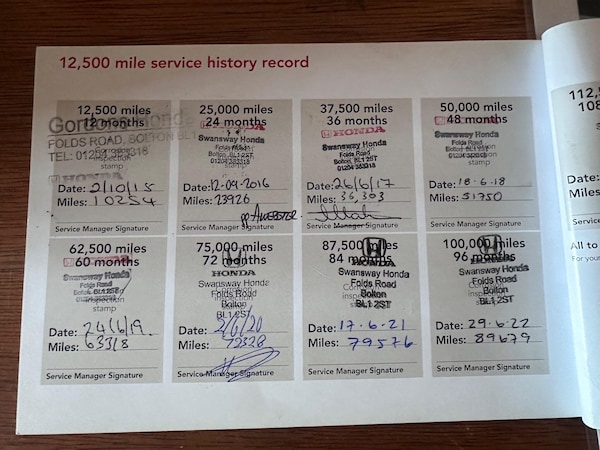 12,500 mile service history record
12,500 miles
12 months
Gordons Honda
FOLDS ROAD, BOLTON BL1
TEL: 01204
HONDA
inspection
stamp
Date: 2/10/15
Miles: 10254
Service Manager Signature
25,000 miles
24 months
HONDA
Swansway Honda
Folds Road
Bolton, BL1 2ST
stamp
Date: 12-09-2016
Miles: 23926
Service Manager Signature
37,500 miles
36 months
HONDA
Swansway Honda
Folds Road
Bolton, BL1 2ST
stamp
Date: 26/6/17
Miles: 36,303
Service Manager Signature
50,000 miles
48 months
Swansway Honda
Folds Road
Bolton, BL1 2ST
stamp
Date: 18-6-18
Miles: 51750
Service Manager Signature
112,5
108
Date:
Miles:
Service
62,500 miles
60 months
Swansway Honda
Folds Road
inspection
stamp
Date: 24/6/19.
Miles: 63318
Service Manager Signature
75,000 miles
72 months
HONDA
Swansway Honda
Folds Road
Bolton
BL1 2ST
Date: 2/6/20
Miles: 72328
Service Manager Signature
87,500 miles
84 months
HONDA
Swansway Honda
Folds Road
Bolton
BL1 2ST
Date: 17-6-21
Miles: 79576
Service Manager Signature
100,000 miles
96 months
Swansway Honda
Folds Road
Bolton
BL1 2ST
Date: 29-6-22
Miles: 89679
Service Manager Signature
All to
For your